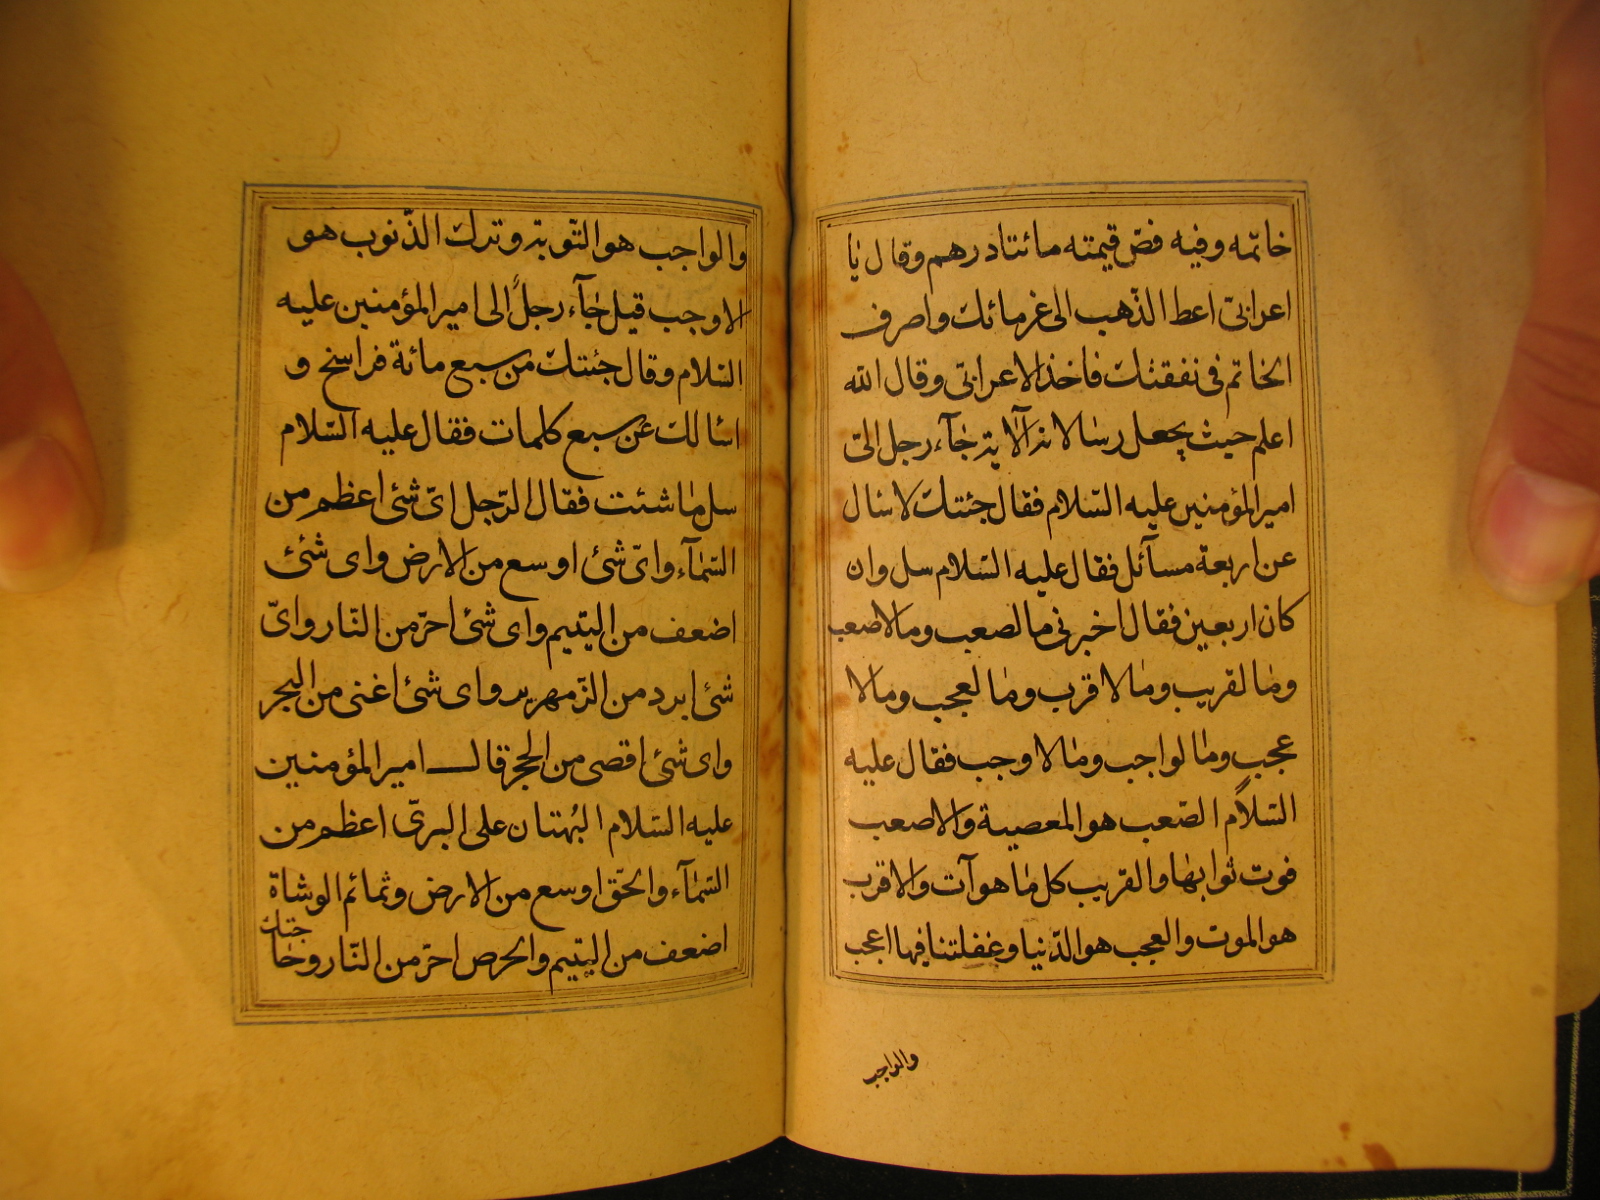 خاتمه وفيه فصّ قيمته مائتا درهم وقال يا
اعرابىّ اعط الذّهب الى غرمائك واصرف
الخاتم فى نفقتك فاخذ الاعرابىّ وقال الله
اعلم حيث يجعل رسالاته الآية جاۤء رجل الىّ
امير المؤمنين عليه السّلام فقال جئتك لاسال
عن اربعة مسآئل فقال عليه السّلام سل وان
كان اربعين فقال اخبرنى ما لصعب وما لاصعب
وما لقريب وما لاقرب وما لعجب وما لا
عجب وما لواجب وما لاوجب فقال عليه
السّلام الصّعب هو المعصية والاصعب
فوت ثوابها والقريب كل ما هو آت والاقرب
هو الموت والعجب هو الدّنيا وغفلتنا فيها اعجب
والواجب
والواجب هو التّوبة وترك الذّنوب هو
الاوجب قيل جاۤء رجلً الى امير المؤمنين عليه
السّلام وقال جئتك من سبع مائة فراسخ و
اسئالك عن سبع كلمات فقال عليه السّلام
سل ما شئت فقال الرّجل اىّ شئ اعظم من
السّماۤء واىّ شئ اوسع من الارض واى شئ
اضعف من اليتيم واى شئ احرّ من النّار واىّ
شئ ابرد من الزّمهرير واى شئ اغنى من البحر
واى شئ اقصى من الحجر قال امير المؤمنين
عليه السّلام البُهتان على البرىّ اعظم من
السّماۤء والحقّ اوسع من الارض ونمائم الوشاة
اضعف من اليتيم والحرص احرّ من النّار وحا
جتك